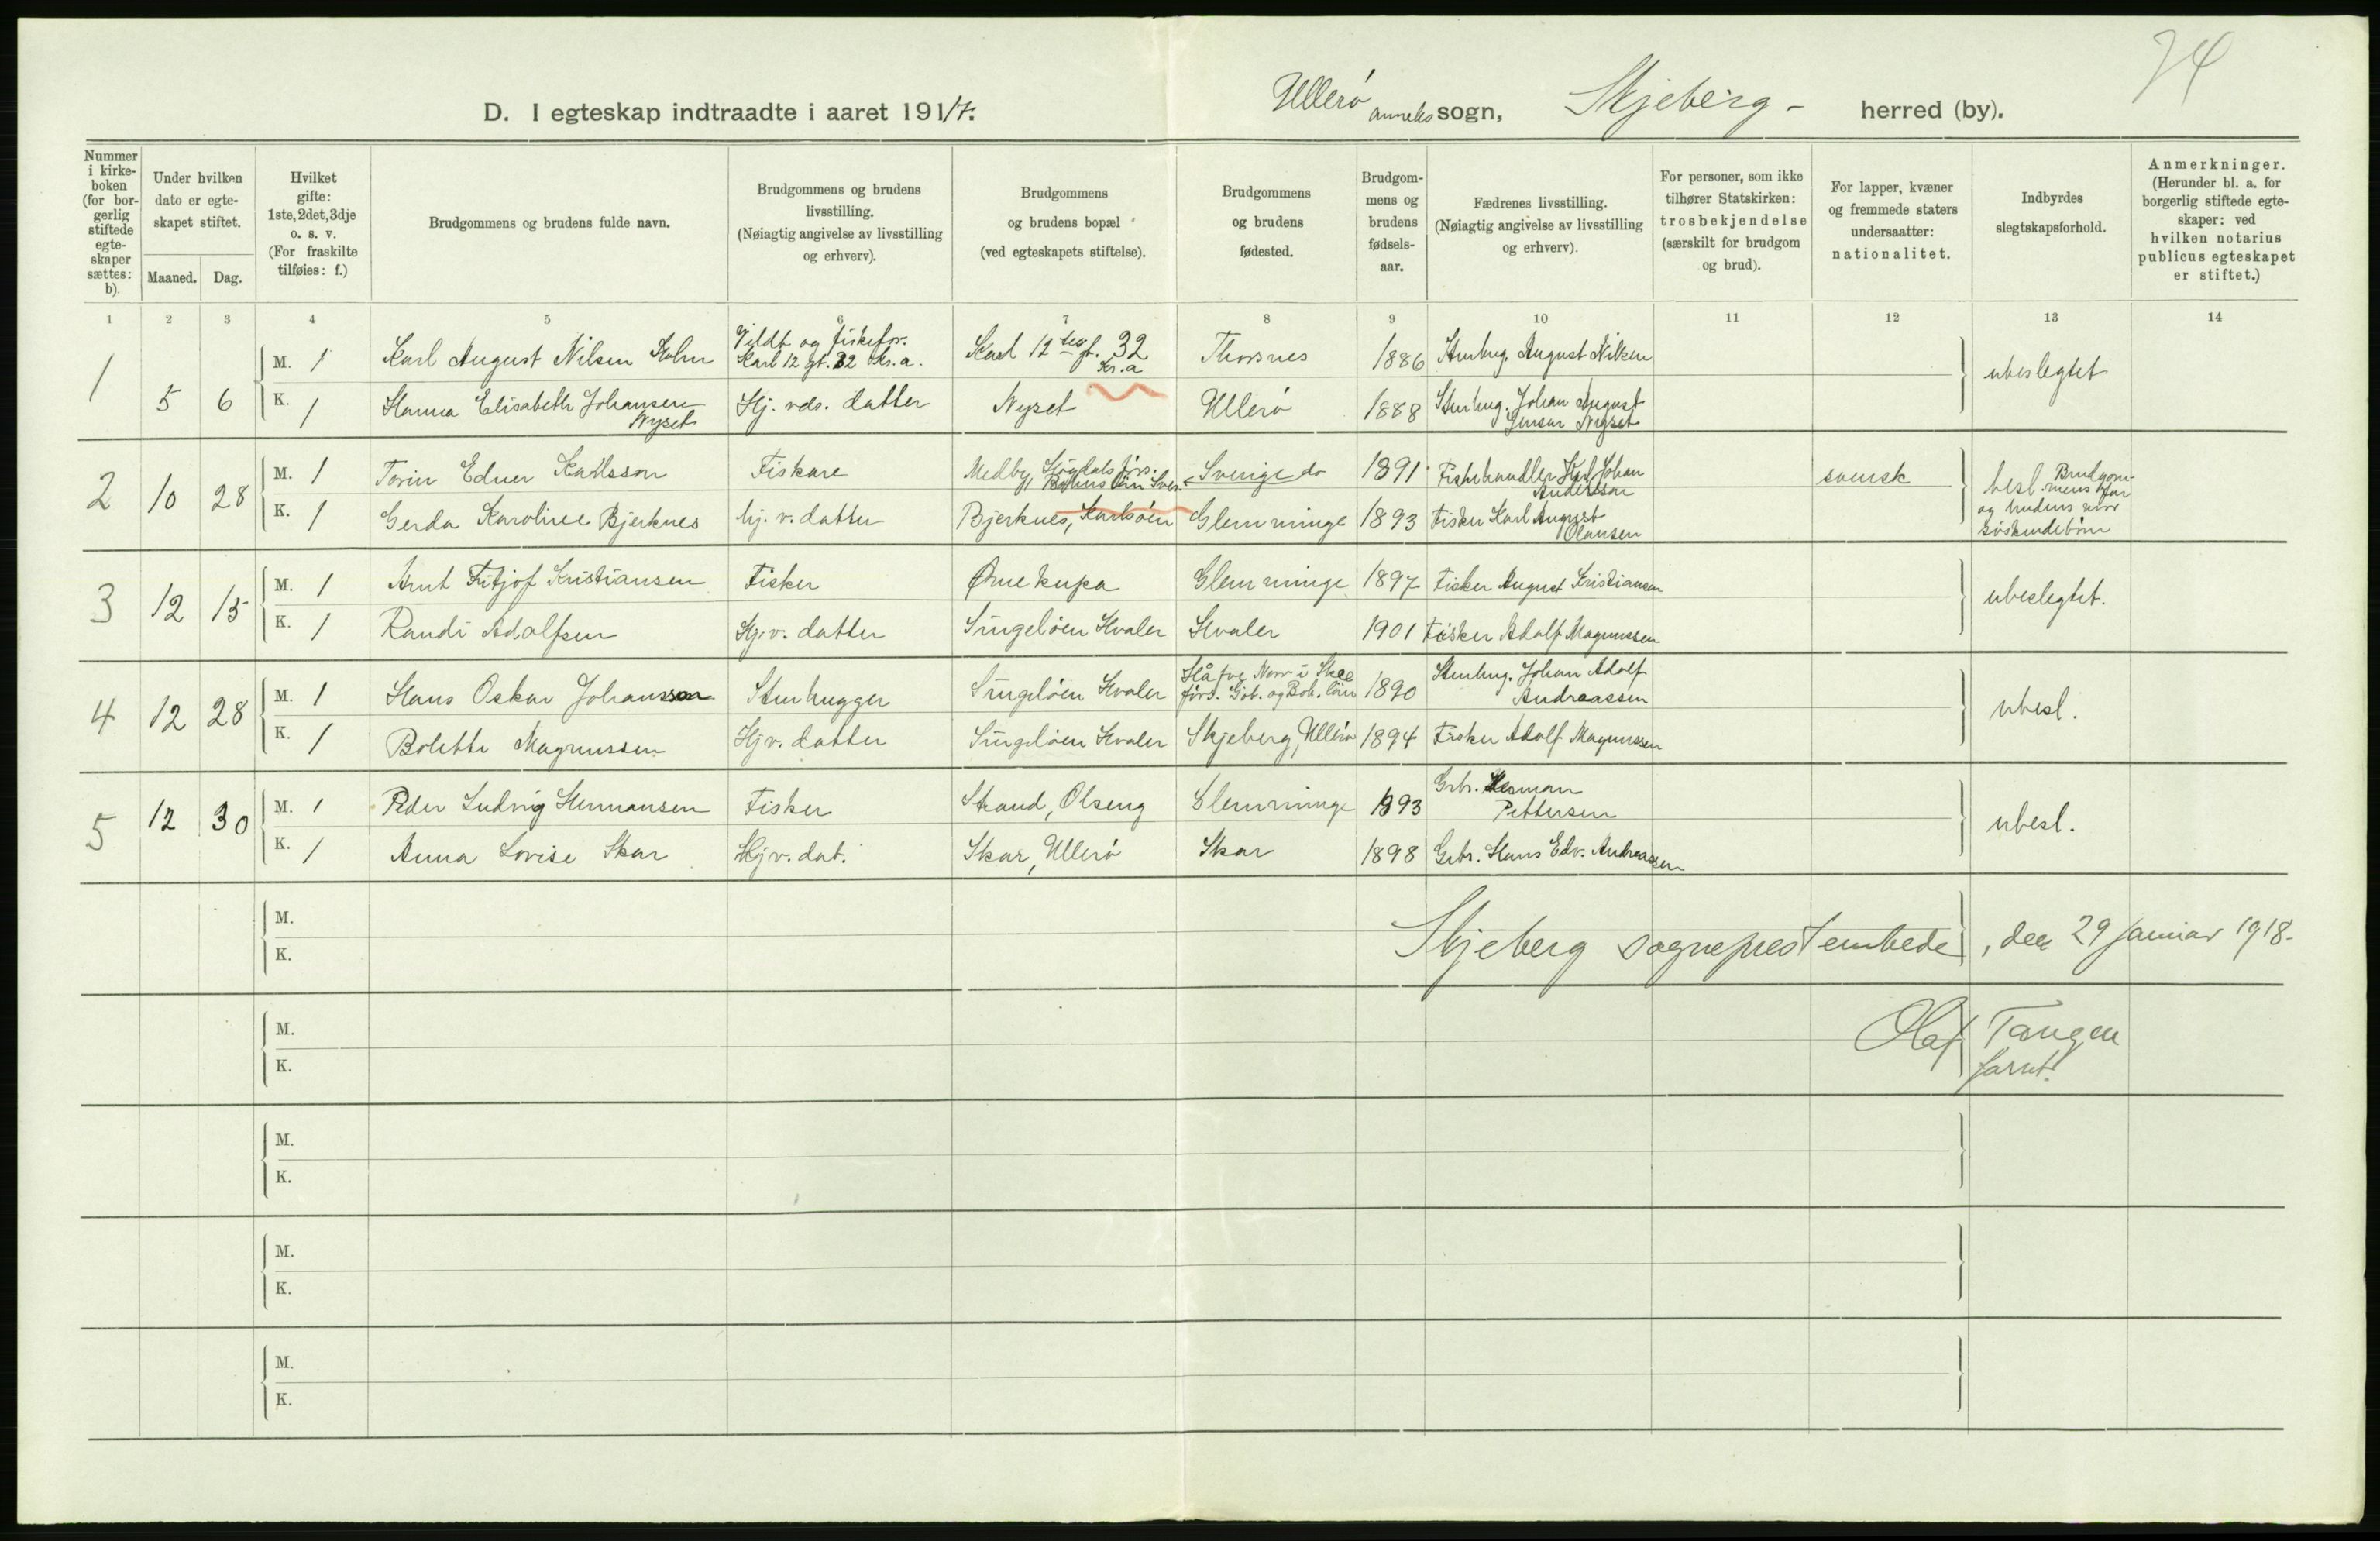 74
D. I egteskap indtraadte i aaret 1917. Ullerö anneks sogn, Skjeberg - herred (by).
Nummer i kirkeboken (for borgerlig stiftede egteskaper sættes: b).
Under hvilken dato er egteskapet stiftet.
Maaned. Dag.
Hvilket gifte: 1ste, 2det, 3dje o. s. v. (For fraskilte tilføies: f.)
Brudgommens og brudens fulde navn.
Brudgommens og brudens livsstilling. (Nøiagtig angivelse av livsstilling og erhverv).
Brudgommens og brudens bopæl (ved egteskapets stiftelse).
Brudgommens og brudens fødested.
Brudgommens og brudens fødselsaar.
Fædrenes livsstilling. (Nøiagtig angivelse av livsstilling og erhverv).
For personer, som ikke tilhører Statskirken: trosbekjendelse (særskilt for brudgom og brud).
For lapper, kvæner og fremmede staters undersaatter: nationalitet.
Indbyrdes slegtskapsforhold.
Anmerkninger. (Herunder bl. a. for borgerlig stiftede egteskaper: ved hvilken notarius publicus egteskapet er stiftet.)
1 2 3 4 5 6 7 8 9 10 11 12 13 14
1 5 6 M. 1 Karl August Nilsen Holm Vildt og fiskefor. Karl 12 gt. 32 Kr.a. Karl 12 tes gt. 32 Kr.a Thorsnes 1886 Stenhug. August Nilsen ubeslegtet
K. 1 Hanna Elisabeth Johansen Nyset Hj. vds. datter Nyset Ullerö 1888 Stenhug. Johan August Jensen Nyset
2 10 28 M. 1 Torin Edner Karlsson Fiskare Medby,förs. Bohus län Sver. Sverige do 1891 Fiskehandler Karl Johan Andersson svensk besl. Brudgommens far og brudens mor söskendebörn
K. 1 Gerda Karoline Bjerknes hj. v. datter Bjerknes, Karlsöen Glemminge 1893 Fisker Karl August Olausen
3 12 15 M. 1 Arnt Fritjof Kristiansen Fisker Ørnekupa Glemminge 1897 Fisker August Kristiansen ubeslegtet.
K. 1 Randi Adolfsen Hj. v. datter Singelöen Hvaler Hvaler 1901 Fisker Adolf Magnussen
4 12 28 M. 1 Hans Oskar Johansson Stenhugger Singelöen Hvaler Norr i Skee förs. Göt. og Boh. län 1890 Stenhug. Johan Adolf Andreassen ubesl.
K. 1 Bolette Magnussen Hj v. datter Singelöen Hvaler Skjeberg, Ullerö 1894 Fisker Adolf Magnussen
5 12 30 M. 1 Peder Ludvig Hermansen Fisker Strand, Olseng Glemminge 1893 Grbr. Herman Pettersen ubesl.
K. 1 Anna Lovise Skar Hj v. dat. Skar, Ullerö Skar 1898 Grbr. Hans Edv. Andreassen
M.
K.
Skjeberg sogneprestembede, den 29 januar 1918.
M.
K.
Olaf Tangen
M.
K.
M.
K.
M.
K.